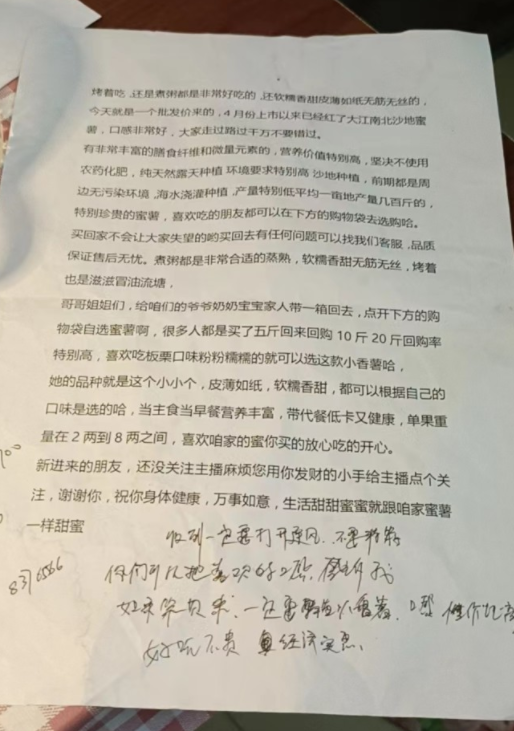 烤着吃,还是煮粥都是非常好吃的,还软糯香甜皮薄如纸无筋无丝的,
今天就是一个批发价来的,4月份上市以来已经红了大江南北沙地蜜
薯,口感非常好,大家走过路过千万不要错过。
有非常丰富的膳食纤维和微量元素的,营养价值特别高,坚决不使用
农药化肥,纯天然露天种植 环境要求特别高 沙地种植,前期都是周
边无污染环境,海水浇灌种植,产量特别低平均一亩地产量几百斤的,
特别珍贵的蜜薯,喜欢吃的朋友都可以在下方的购物袋去选购哈。
买回家不会让大家失望的哟买回去有任何问题可以找我们客服,品质
保证售后无忧。煮粥都是非常合适的蒸熟,软糯香甜无筋无丝,烤着
也是滋滋冒油流塘,
哥哥姐姐们,给咱们的爷爷奶奶宝宝家人带一箱回去,点开下方的购
物袋自选蜜薯啊,很多人都是买了五斤回来回购10斤20斤回购率
特别高,喜欢吃板栗口味粉粉糯糯的就可以选这款小香薯哈,
她的品种就是这个小小个,皮薄如纸,软糯香甜,都可以根据自己的
口味是选的哈,当主食当早餐营养丰富,带代餐低卡又健康,单果重
量在2两到8两之间,喜欢咱家的蜜你买的放心吃的开心。
新进来的朋友,还没关注主播麻烦您用你发财的小手给主播点个关
注,谢谢你,祝你身体健康,万事如意,生活甜甜蜜蜜就跟咱家蜜薯
一样甜蜜
收到一定要打开通风,不要
好吃不贵 真经济实惠.